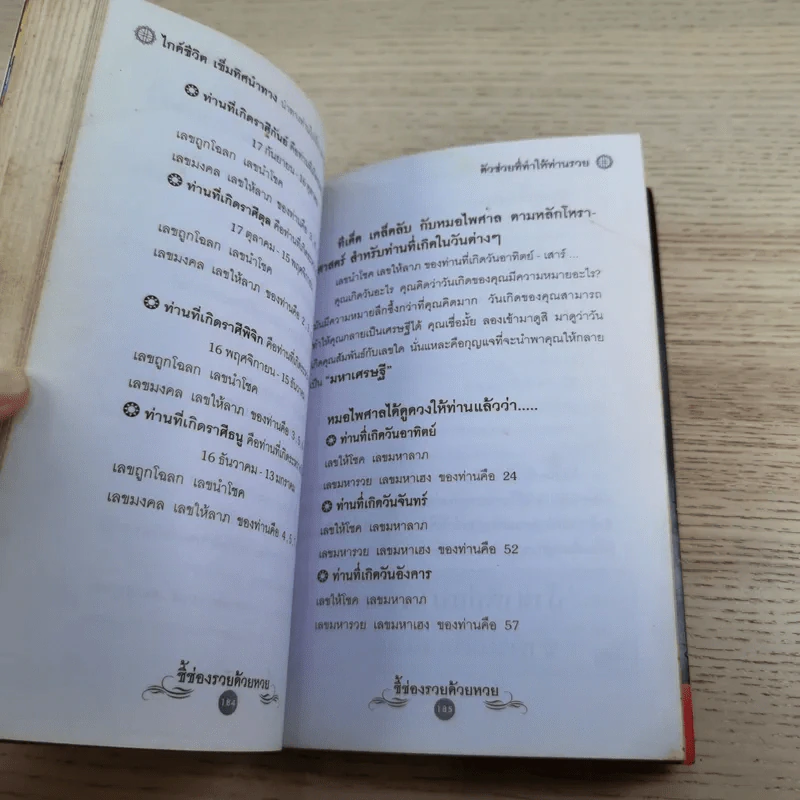 ไกด์ชีวิต เข็มทิศนำทาง
ท่านที่เกิดราศีกันย์ คือท่านที่เกิด
17 กันยายน - 16
เลขถูกโฉลก เลขนำโชค
เลขมงคล เลขให้ลาภ ของท่านคือ
ท่านที่เกิดราศีตุล คือท่านที่เกิด
17 ตุลาคม - 15 พฤศจิกายน
เลขถูกโฉลก เลขนำโชค
เลขมงคล เลขให้ลาภ ของท่านคือ 2
ท่านที่เกิดราศีพิจิก คือท่านที่เกิด
16 พฤศจิกายน - 15 ธันวาคม
เลขถูกโฉลก เลขนำโชค
เลขมงคล เลขให้ลาภ ของท่านคือ 3, 5,
ท่านที่เกิดราศีธนู คือท่านที่เกิด
16 ธันวาคม - 13 มกราคม
เลขถูกโฉลก เลขนำโชค
เลขมงคล เลขให้ลาภ ของท่านคือ 4, 5,
ชี้ช่องรวยด้วยหวย
184
ตัวช่วยที่ทำให้ท่านรวย
ทีเด็ด เคล็ดลับ กับหมอไพศาล ตามหลักโหรา-
ศาสตร์ สำหรับท่านที่เกิดในวันต่างๆ
เลขนำโชค เลขให้ลาภ ของท่านที่เกิดวันอาทิตย์ - เสาร์ ...
คุณเกิดวันอะไร คุณคิดว่าวันเกิดของคุณมีความหมายอะไร?
มันมีความหมายลึกซึ้งกว่าที่คุณคิดมาก วันเกิดของคุณสามารถ
ทำให้คุณกลายเป็นเศรษฐีได้ คุณเชื่อมั้ย ลองเข้ามาดูสิ มาดูว่าวัน
ใดคุณสัมพันธ์กับเลขใด นั่นแหละคือกุญแจที่จะนำพาคุณให้กลาย
เป็น "มหาเศรษฐี"
หมอไพศาลได้ดูดวงให้ท่านแล้วว่า.....
ท่านที่เกิดวันอาทิตย์
เลขให้โชค เลขมหาลาภ
เลขมหารวย เลขมหาเฮง ของท่านคือ 24
ท่านที่เกิดวันจันทร์
เลขให้โชค เลขมหาลาภ
เลขมหารวย เลขมหาเฮง ของท่านคือ 52
ท่านที่เกิดวันอังคาร
เลขให้โชค เลขมหาลาภ
เลขมหารวย เลขมหาเฮง ของท่านคือ 57
ชี้ช่องรวยด้วยหวย
185